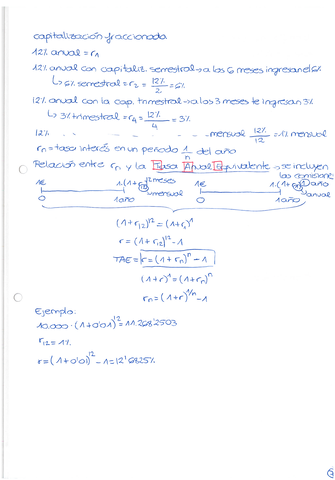 capitalización fraccionada
12% anual = r₁
12% anual con capitaliz. semestral → a los 6 meses ingresan el 6%
↳ 6% semestral = r₂ = 12%/2 = 6%
12% anual con la cap. trimestral → a los 3 meses te ingresan 3%
↳ 3% trimestral = r₄ = 12%/4 = 3%
12% .. ... ... mensual 12%/12 = 1% mensual
rₙ = tasa interés en un periodo 1/n del año
Relación entre rₙ y la Tasa Anual Equivalente → se incluyen las comisiones
1€ 1·(1+r₁₂)¹² meses 1€ 1·(1+r₁)¹ año
mensual anual
0 1 año 0 1 año
(1+r₁₂)¹² = (1+r₁)¹
r = (1+r₁₂)¹² - 1
TAE = r = (1+rₙ)ⁿ - 1
(1+r)¹ = (1+rₙ)ⁿ
rₙ = (1+r)^1/n - 1
Ejemplo:
10.000 · (1+0'01)¹² = 11.268'2503
r₁₂ = 1%
r = (1+0'01)¹² - 1 = 12'6825%